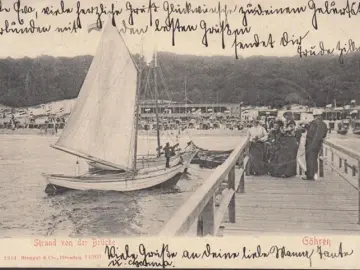 viele herzliche Grüße Glückwünsche zu deinem Geburtst
verbunden mit den besten Grüßen
sendet Dir
Strand von der Brücke
Göhren
1214 Stengel & Co., Dresden
Viele Grüße an deine liebe Mama, Tante
u.